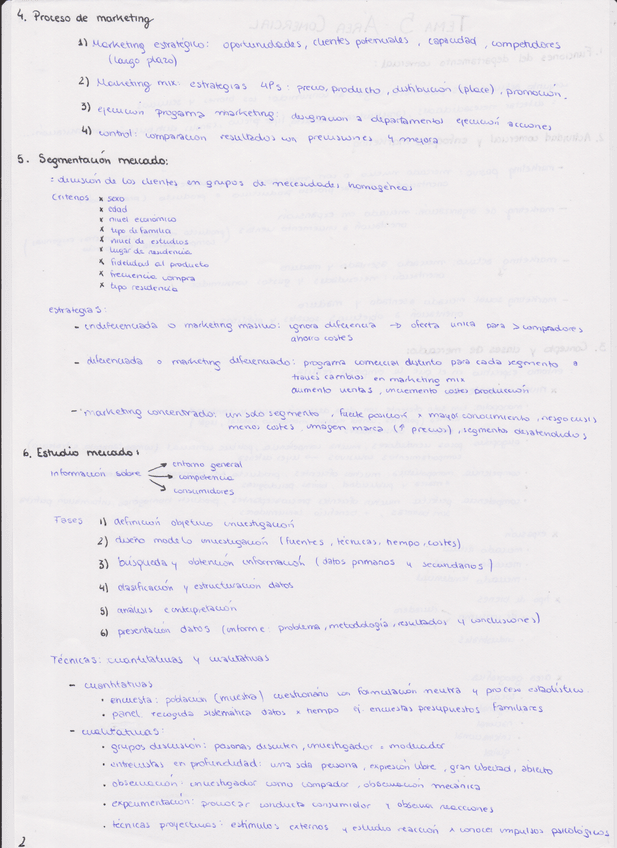 4. Proceso de marketing
1) Marketing estratégico: oportunidades, clientes potenciales, capacidad, competidores
(largo plazo)
2) Marketing mix: estrategias 4Ps: precio, producto, distribución (place), promoción.
3) ejecución programa marketing: designación a departamentos ejecución acciones
4) control: comparación resultados con previsiones y mejora
5. Segmentación mercado:
: división de los clientes en grupos de necesidades homogéneas
Criterios x sexo
x edad
x nivel económico
x tipo de familia
x nivel de estudios
x lugar de residencia
x fidelidad al producto
x frecuencia compra
x tipo residencia
estrategias:
- indiferenciada o marketing masivo: ignora diferencia → oferta única para > compradores
ahorro costes
- diferenciada o marketing diferenciado: programa comercial distinto para cada segmento a
través cambios en marketing mix
aumento ventas, incremento costes producción
- marketing concentrado: un solo segmento, fuerte posición x mayor conocimiento, riesgo crisis
menos costes, imagen marca (↑ precios), segmentos desatendidos
6. Estudio mercado:
Información sobre → entorno general
→ competencia
→ consumidores
Fases 1) definición objetivo investigación
2) diseño modelo investigación (fuentes, técnicas, tiempo, costes)
3) búsqueda y obtención información (datos primarios y secundarios)
4) clasificación y estructuración datos
5) análisis e interpretación
6) presentación datos (informe: problema, metodología, resultados y conclusiones)
Técnicas: cuantitativas y cualitativas
- cuantitativas
• encuesta: población (muestra) cuestionario con formulación neutra y proceso estadístico.
• panel: recogida sistemática datos x tiempo ej. encuestas presupuestos familiares
- cualitativas:
• grupos discusión: personas discuten, investigador = moderador
• entrevistas en profundidad: una sola persona, expresión libre, gran libertad, abierto
• observación: investigador como comprador, observación mecánica
• experimentación: provocar conducta consumidor y observar reacciones
• técnicas proyectivas: estímulos externos y estudio reacción x conocer impulsos psicológicos
2